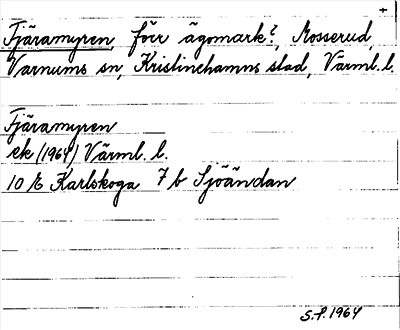 +
Tjäramyren, förr ägomark?, Rosserud,
Varnums sn, Kristinehamns stad, Värml. l.
Tjäramyren
ek (1964) Värml. l.
10 E Karlskoga 7 b Sjöändan
S.f. 1964